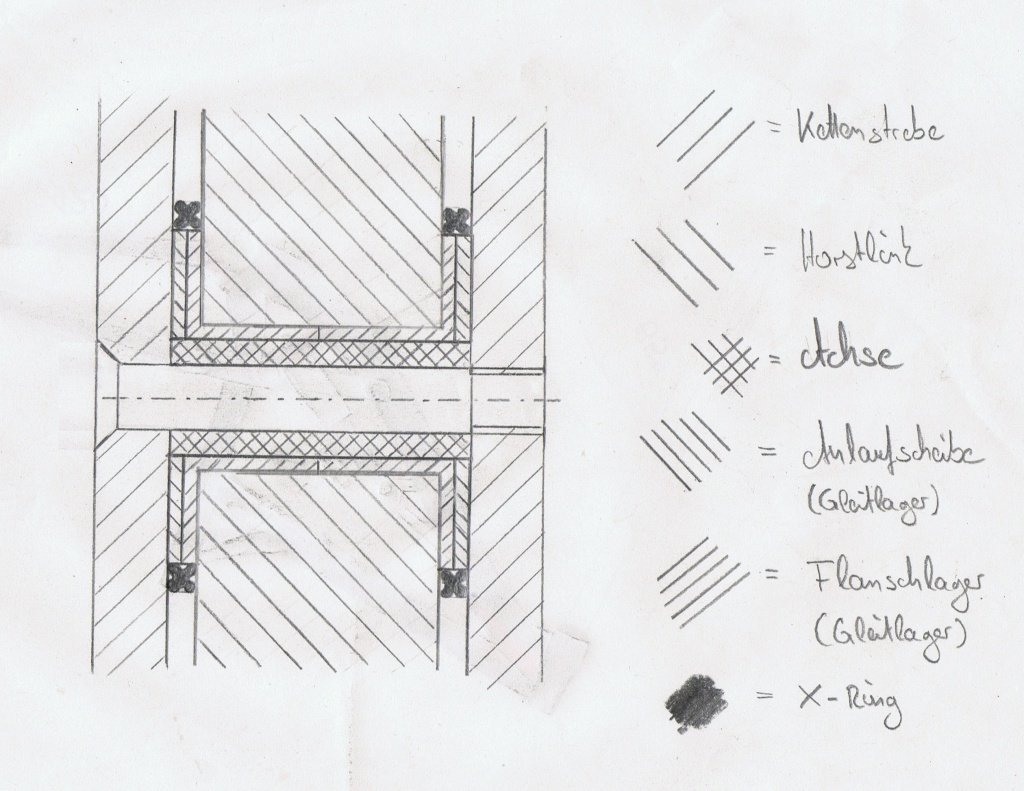 = Kettenstrebe
= Horstlink
= Achse
= Anlaufscheibe
(Gleitlager)
= Flanschlager
(Gleitlager)
= X-Ring